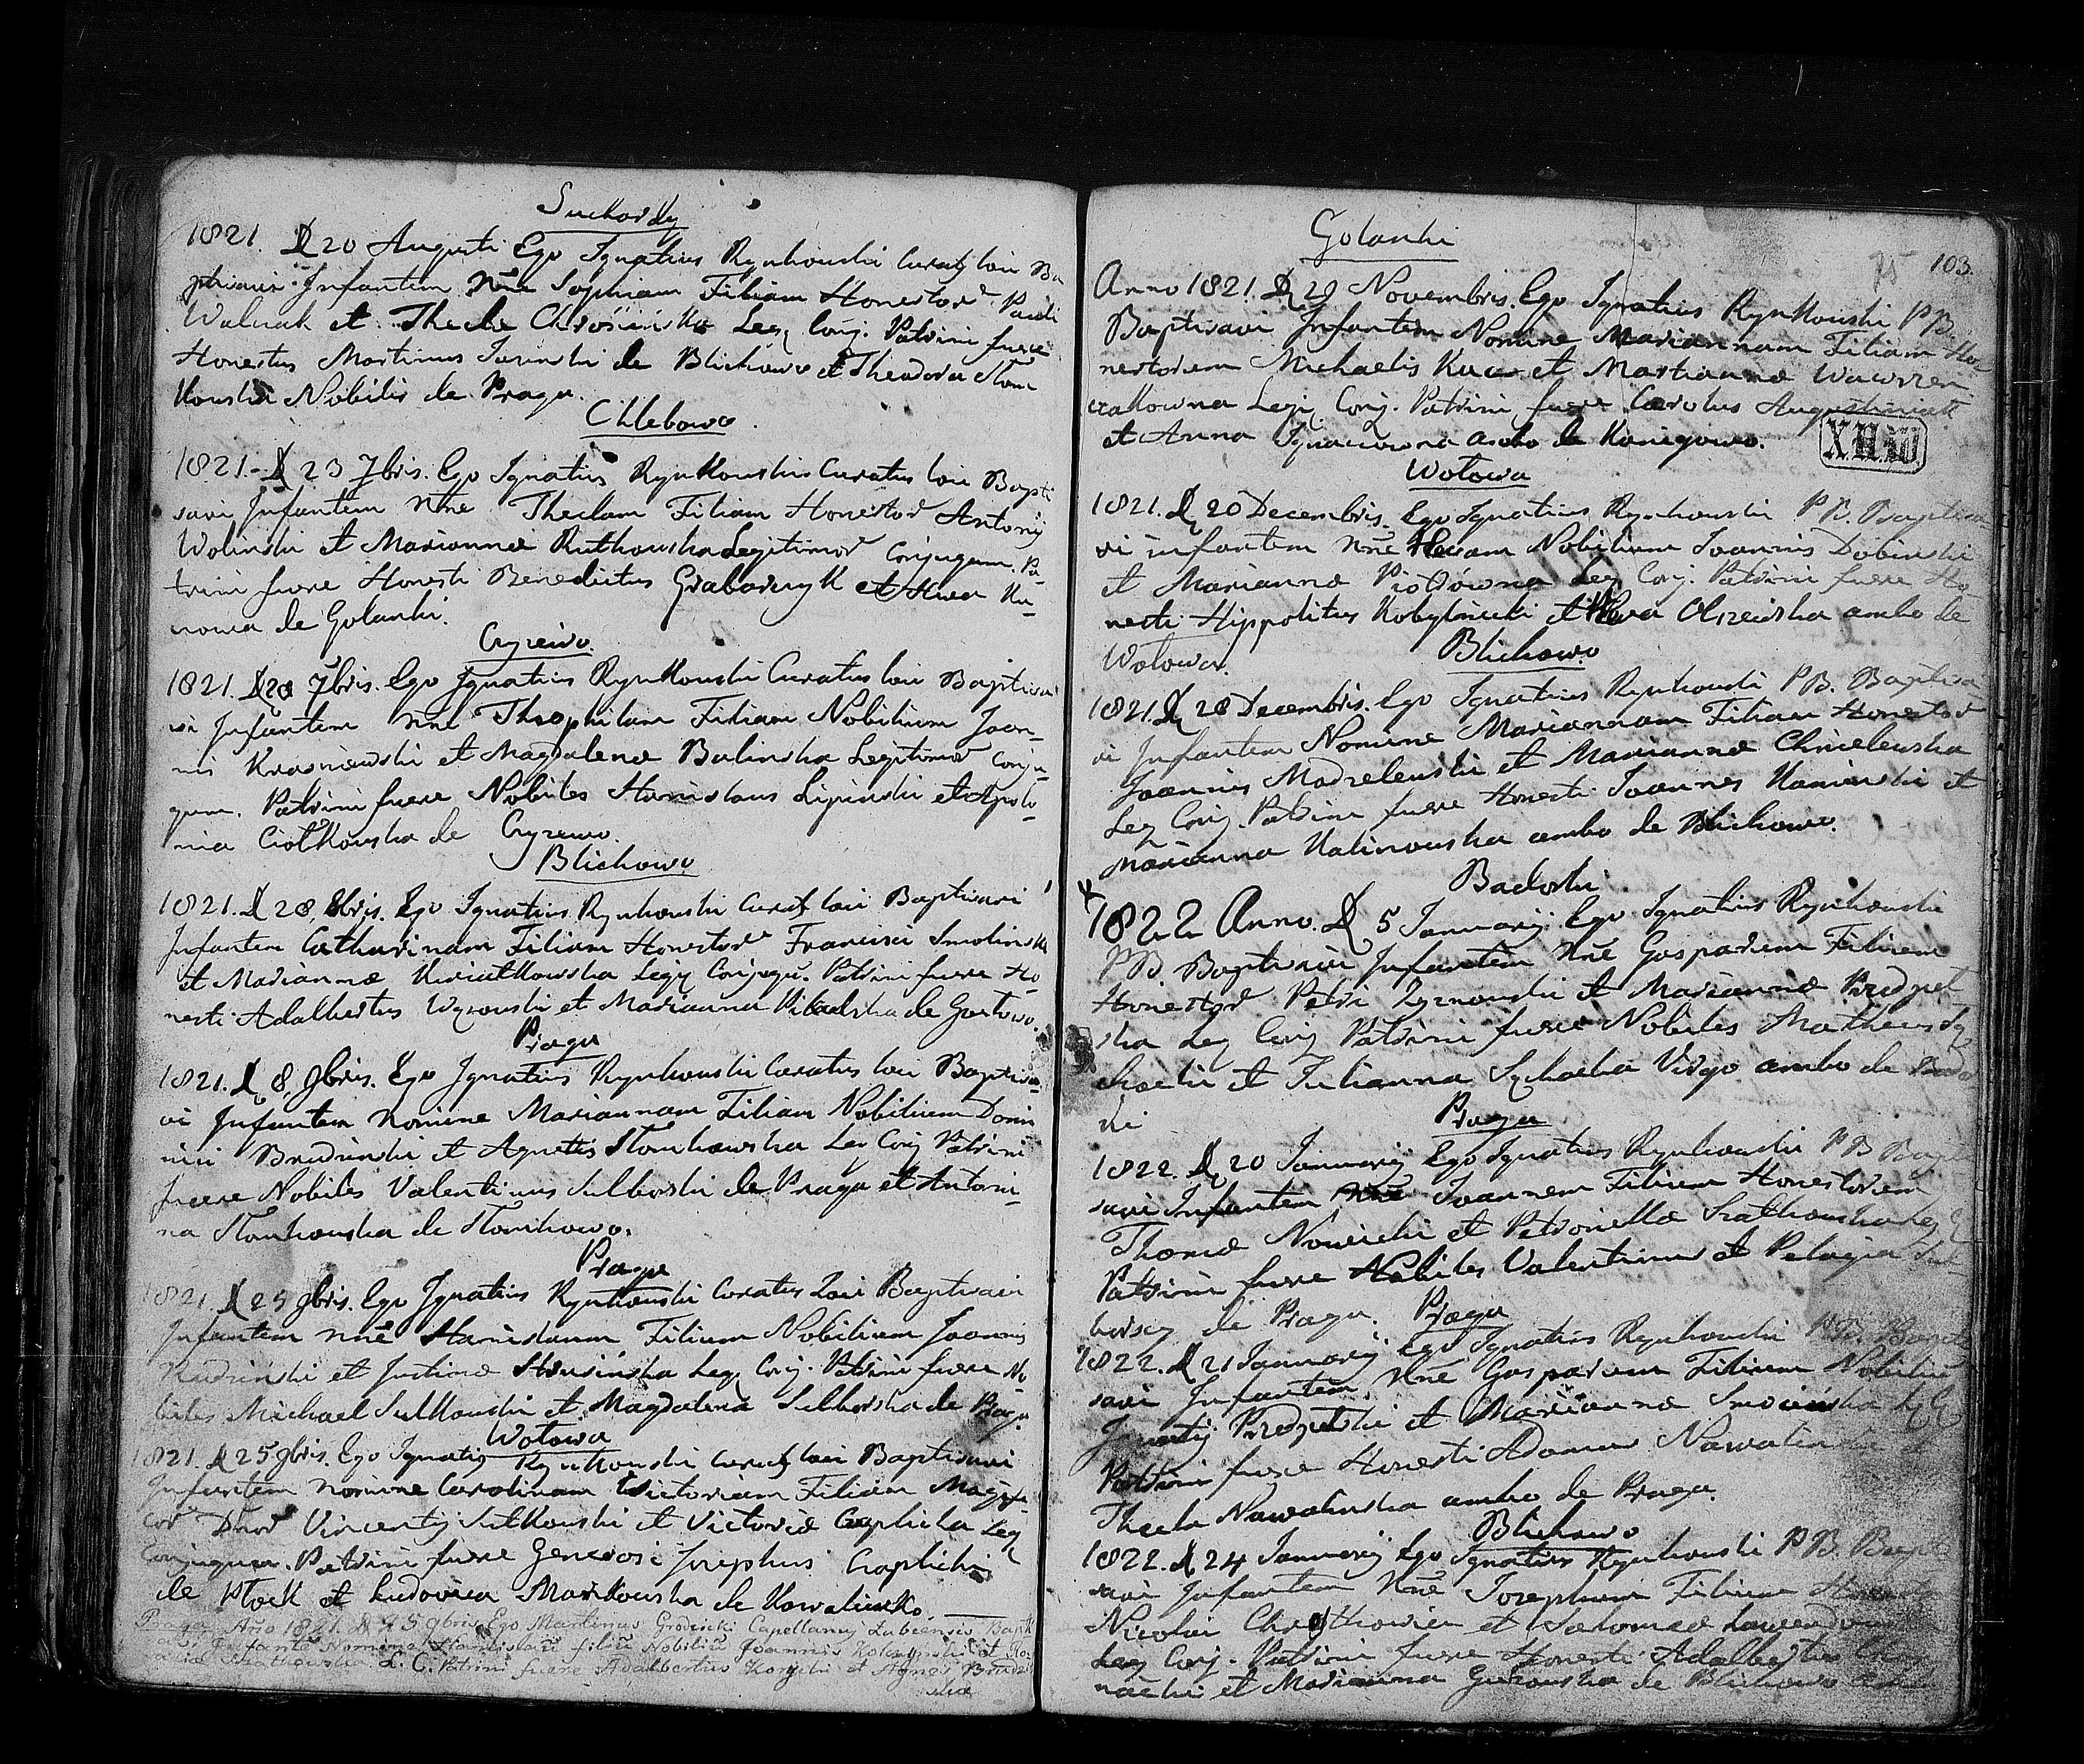 Suchardy
1821. D 20 Augusti Ego Ignatius Rynkowski Curatq loci Ba
ptisavi Infantem Nñe Sophiam Filiam Honestor Pauli
Walczak et Theclæ Leg Conj. Patrini fuere
Honestus Martinus de Blichowo et Theodora Słom
kowska Nobilis de Praga.
Chlebowo.
1821. D 23 7bris. Ego Ignatius Rynkowski Curatus loci Bapti
savi Infantem Nñe Theclam Filiam Honestor Antonij
Wolinski et Mariannæ Rutkowska Legitimor Conjugum. Pa-
trini fuere Honesti Benedictus Grabarczyk et Hewa Ku-
nowa de Golanki.
Cyzewo.
1821. D 7bris. Ego Ignatius Rynkowski Curatus loci Baptisa
vi Infantem Nñe Theophilam Filiam Nobilium Joan-
nis Krasniewski et Magdalenæ Balinska Legitimor Conju-
gum. Patrini fuere Nobiles Stanislaus Lipinski et Apolo-
nia Ciołkowska de Cyzewo.
Blichowo
1821. D 28, 8bris. Ego Ignatius Rynkowski Curatq loci Baptisavi
Infantem Catharinam Filiam Honestor Francisci Smolinski
et Mariannæ Kwiatkowska Legq Conjugu. Patrini fuere Ho-
nesti Adalbertus et Marianna de
Praga
1821. D 8, 9bris. Ego Ignatius Rynkowski Curatus loci Baptisa-
vi Infantem Nomine Mariannam Filiam Nobilium Domi
nici Brudzinski et Agnetis Słomkowska Leg Conj Patrini
fuere Nobiles Valentinus Sulkowski de Praga et Antoni-
na Słomkowska de Słomkowo.
Praga
1821. D 25 9bris. Ego Ignatius Rynkowski Curatus Loci Baptisavi
Infantem Nñe Stanislaum Filium Nobilium Joannis
Rudzinski et Justinæ Leg Conj. Patrini fuere No-
biles Michael Sulkowski et Magdalena de Praga
Wołowa
1821. D 25 9bris. Ego Ignatiq Rynkowski Curatq loci Baptisavi
Infantem Nomine Carolinam Victoriam Filiam Magnifi
cor Dnor Vincentij Sutkowski et Victoriæ Czaplicka Leg
Conjugum. Patrini fuere Generosi Josephus Czaplicki
de Płock et Ludovica Markowska de Kowalewko.
Praga Año 1821. D 25 9bris Ego Martinus Grodzicki Capellanus Bapti
savi Infante Nomine Stanislau filiu Nobiliu Joannis et
L. C. Patrini fuere Adalbertus et Agnes
Golanki
103.
75
Anno 1821. D 29 Novembris. Ego Ignatius Rynkowski PB.
Baptisavi Infantem Nomine Mariannam Filiam Ho-
nestorum Michaelis Kuc et Martiannæ Wawrzen
czakowna Legi Conj. Patrini fuere Carolus Augustiniak
et Anna Ignaciowna ambo de Kanigowo.
X.II.W
Wołowa
1821. D 20 Decembris. Ego Ignatius Rynkowski PB. Baptisa
vi infantem Nñe Hevam Nobilium Joannis Dobinski
et Mariannæ Piotrówna Leg Conj. Patrini fuere Ho-
nesti Hippolitus Kobylnicki et Heva Olszewska ambo de
Wołowa.
Blichowo
1821. D 28 Decembris. Ego Ignatius Rynkowski PB. Baptisa
vi Infantem Nomine Mariannam Filiam Honestor
Joannis Modzelewski et Mariannæ Chmielewska
Leg Conj. Patrini fuere Honesti Joannes Kaminski et
Marianna Kalinowska ambo de Blichowo.
Badoski
1822 Anno. D 5 Januarij Ego Ignatius Rynkowski
PB Baptisavi Infantem Nñe Gasparum Filium
Honestor Petri et Mariannæ Przedpeł-
ska Leg Conj Patrini fuere Nobiles Matheus Sy
chocki et Julianna Sychocka Virgo ambo de Bado
ski
Praga
1822. D 20 Januarij Ego Ignatius Rynkowski PB Bapti
savi Infantem Nñe Joannem Filium Honestorum
Thomæ Nowicki et Petronellæ Leg C
Patrini fuere Nobiles Valentinus et Pelagia
de Praga. Praga
1822. D 21 Januarij Ego Ignatius Rynkowski PB. Bapti
savi Infantem Nñe Gasparum Filium Nobiliu
Ignatij Przedpełski et Mariannæ Leg C
Patrini fuere Honesti Adamus
Thecla Nowalinska ambo de Praga.
Blichowo
1822. D 24 Januarij Ego Ignatius Rynkowski PB. Bapti
savi Infantem Nñe Josephum Filium
Nicolai et Salomeæ
Leg Conj. Patrini fuere Honesti Adalbertus
et Marianna de Blichowo